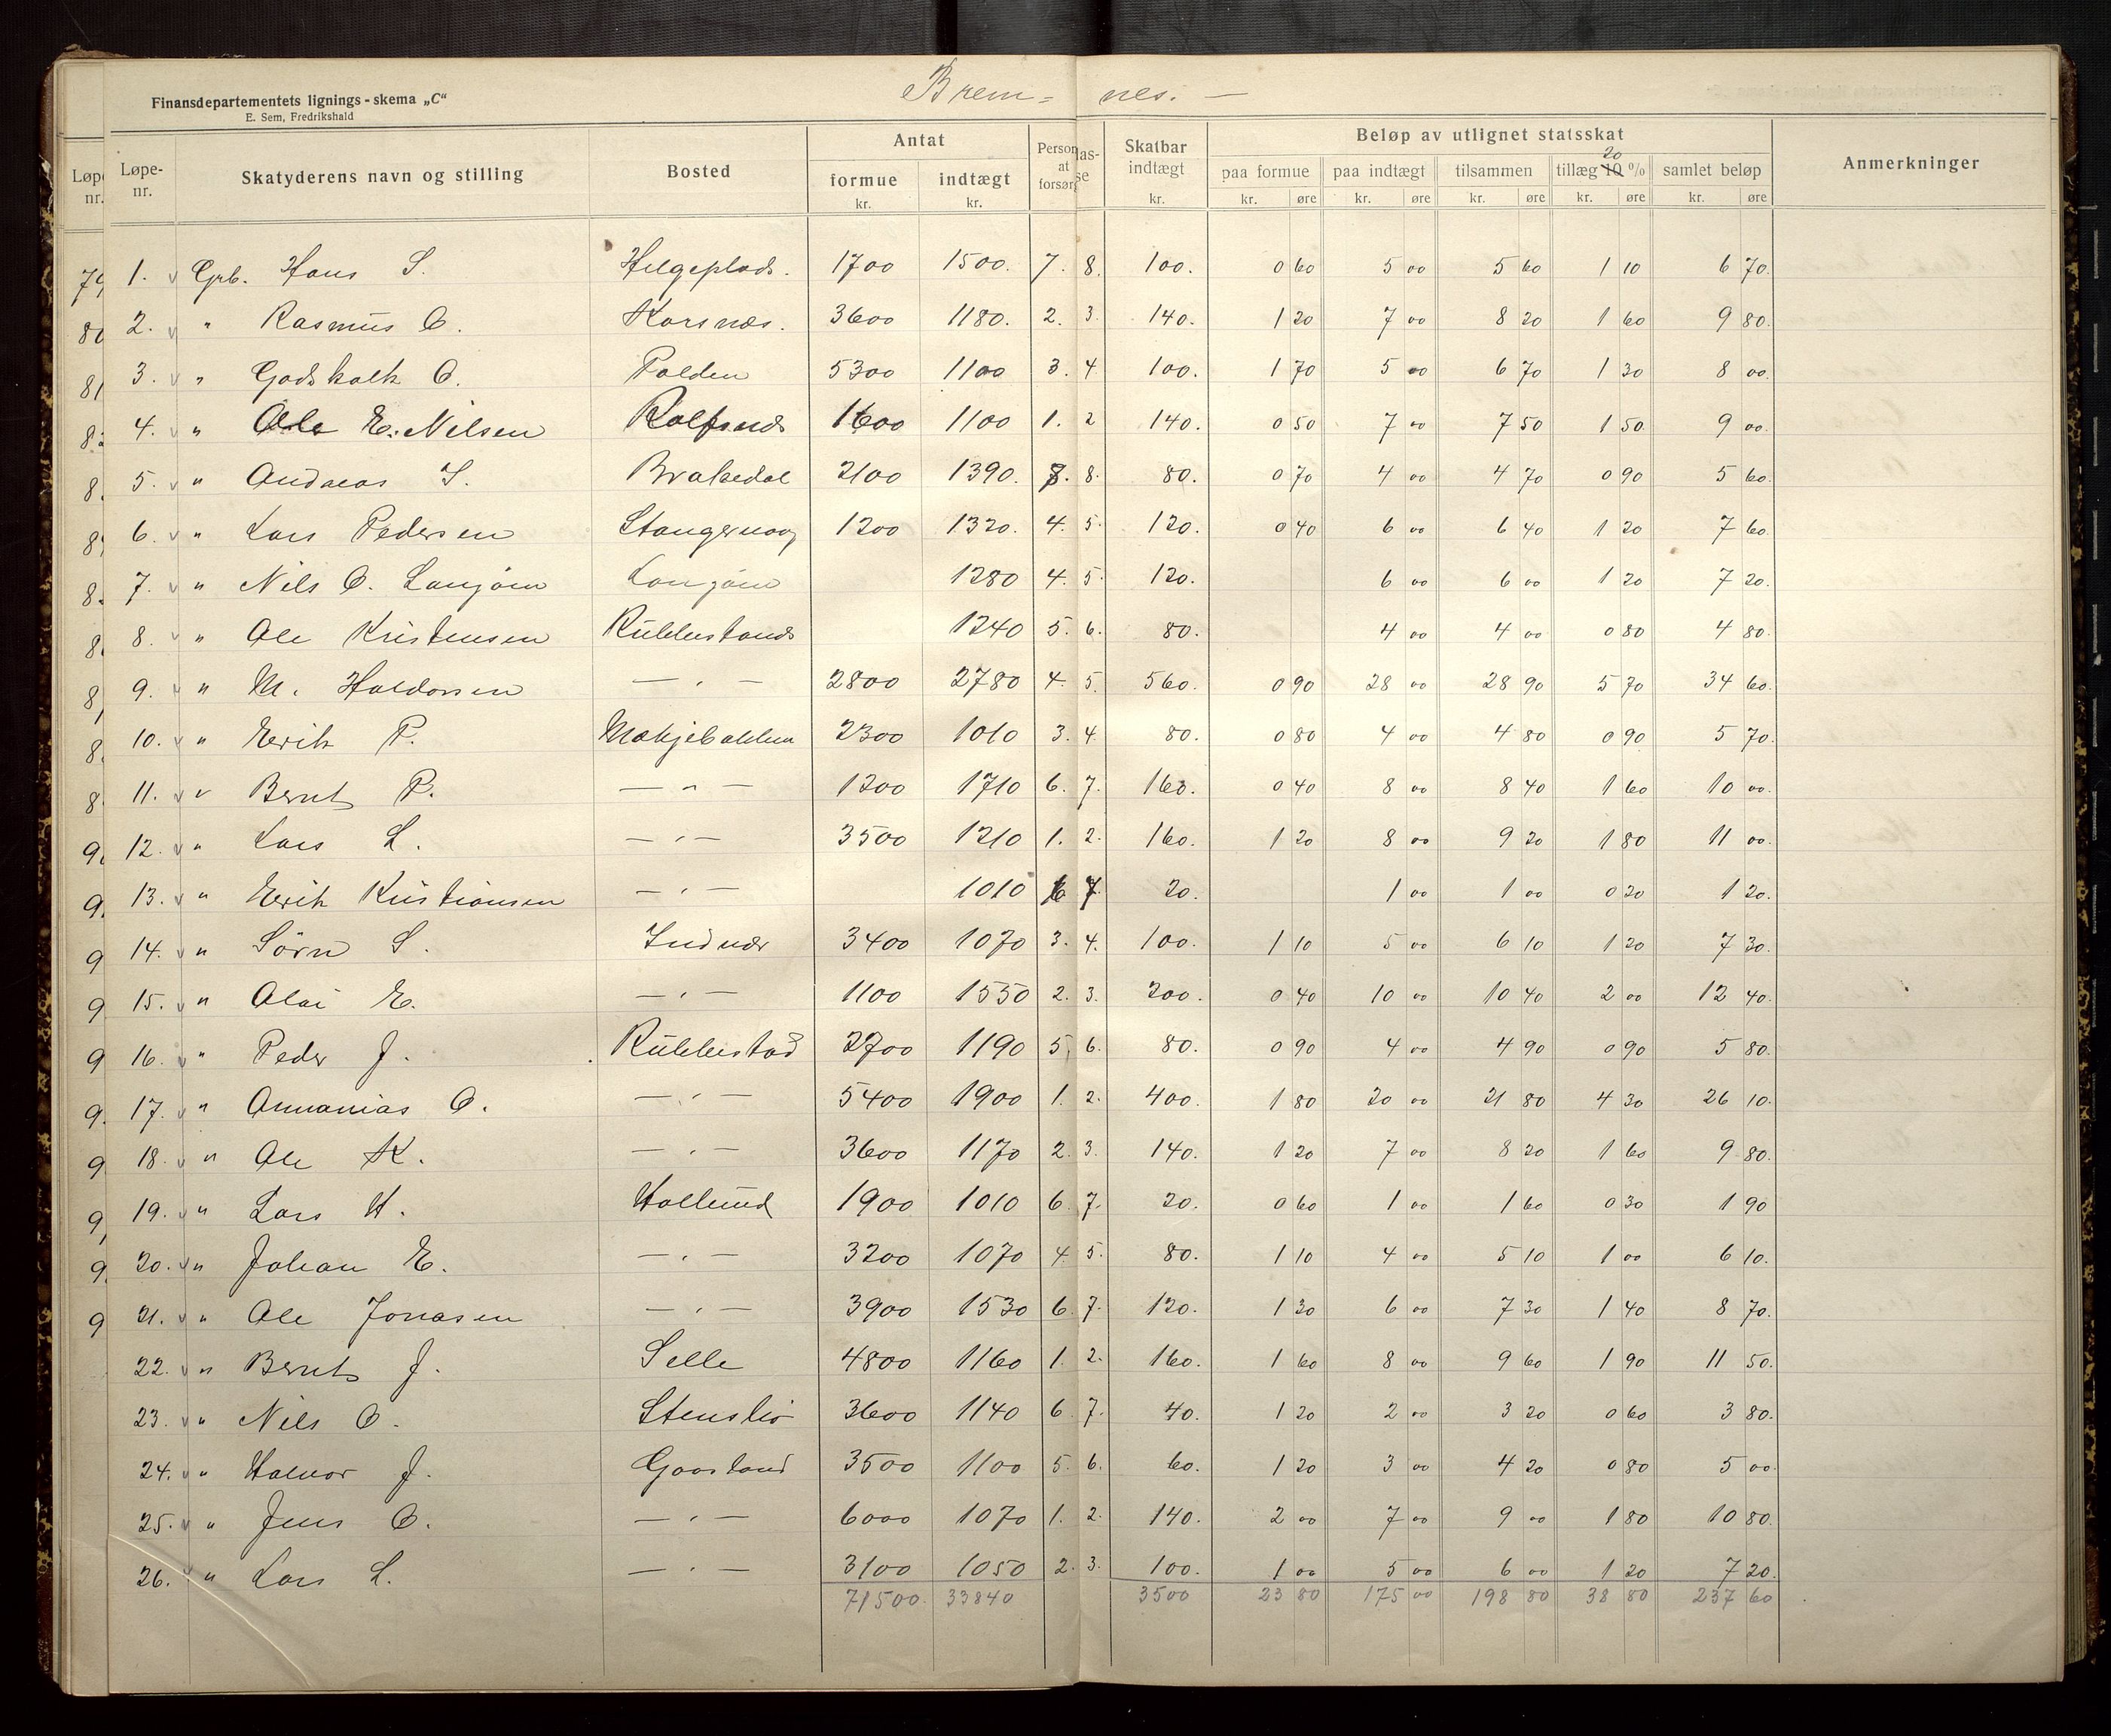 Brem= nes. —
Finansdepartementets lignings-skema „C“
E. Sem, Fredrikshald
Løpe-nr. Skatyderens navn og stilling Bosted Antat Person at forsør klas-se Skatbar indtægt Beløp av utlignet statsskat Anmerkninger
formue indtægt paa formue paa indtægt tilsammen tillæg 10 20 % samlet beløp
kr. kr. kr. kr. øre kr. øre kr. øre kr. øre kr. øre
1. Grb. Hans S. Helgeplads. 1700 1500. 7. 8. 100. 0 60 5 00 5 60 1 10 6 70.
2. " Rasmus O. Korsnes. 3600 1180. 2. 3. 140. 1 20 7 00 8 20 1 60 9 80.
3. " Godskalk O. Polden 5300 1100 3. 4. 100. 1 70 5 00 6 70 1 30 8 00.
4. " Ole E. Nilsen Rolfsnes 1600 1100 1. 2 140. 0 50 7 00 7 50 1 50 9 00.
5. " Andreas I. Brakedal 2100 1390. 7. 8. 80. 0 70 4 00 4 70 0 90 5 60.
6. " Lars Pedersen 1200 1320. 4. 5. 120. 0 40 6 00 6 40 1 20 7 60.
7. " Nils O. 1280 4. 5. 120. 6 00 6 00 1 20 7 20.
8. " Ole Kristensen 1240 5. 6. 80. 4 00 4 00 0 80 4 80.
9. " M. Haldorsen — " — 2800 2780 4. 5. 560. 0 90 28 00 28 90 5 70 34 60.
10. " Erik P. Mækjebakken 2300 1010 3. 4. 80. 0 80 4 00 4 80 0 90 5 70.
11. " Bernt P. — " — 1200 1710 6. 7. 160. 0 40 8 00 8 40 1 60 10 00.
12. " Lars L. — " — 3500 1210 1. 2. 160. 1 20 8 00 9 20 1 80 11 00.
13. " Erik Kristiansen — " — 1010 6 7. 20. 1 00 1 00 0 20 1 20.
14. " Sørn S. Indnær 3400 1070 3. 4. 100. 1 10 5 00 6 10 1 20 7 30.
15. " Olai E. — " — 1100 1550 2. 3. 200. 0 40 10 00 10 40 2 00 12 40.
16. " Peder J. Rubbestad 2700 1190 5 6. 80. 0 90 4 00 4 90 0 90 5 80.
17. " Annanias O. — " — 5400 1900 1. 2. 400. 1 80 20 00 21 80 4 30 26 10.
18. " Ole K. — " — 3600 1170 2. 3. 140. 1 20 7 00 8 20 1 60 9 80.
19. " Lars H. Hollund 1900 1010 6. 7. 20. 0 60 1 00 1 60 0 30 1 90
20. " Johan E. — " — 3200 1070 4 5. 80. 1 10 4 00 5 10 1 00 6 10.
21. " Ole Jonasen — " — 3900 1530 6. 7. 120. 1 30 6 00 7 30 1 40 8 70.
22. " Bernt J. Selle 4800 1160 1. 2. 160. 1 60 8 00 9 60 1 90 11 50.
23. " Nils O. Stensliø 3600 1140 6 7. 40. 1 20 2 00 3 20 0 60 3 80.
24. " Halvor J. Gaasland 3500 1100 5. 6. 60. 1 20 3 00 4 20 0 80 5 00.
25. " Jens O. — " — 6000 1070 1. 2. 140. 2 00 7 00 9 00 1 80 10 80.
26. " Lars L. — " — 3100 1050 2. 3. 100. 1 00 5 00 6 00 1 20 7 20.
71500. 33840 3500 23 80 175 00 198 80 38 80 237 60